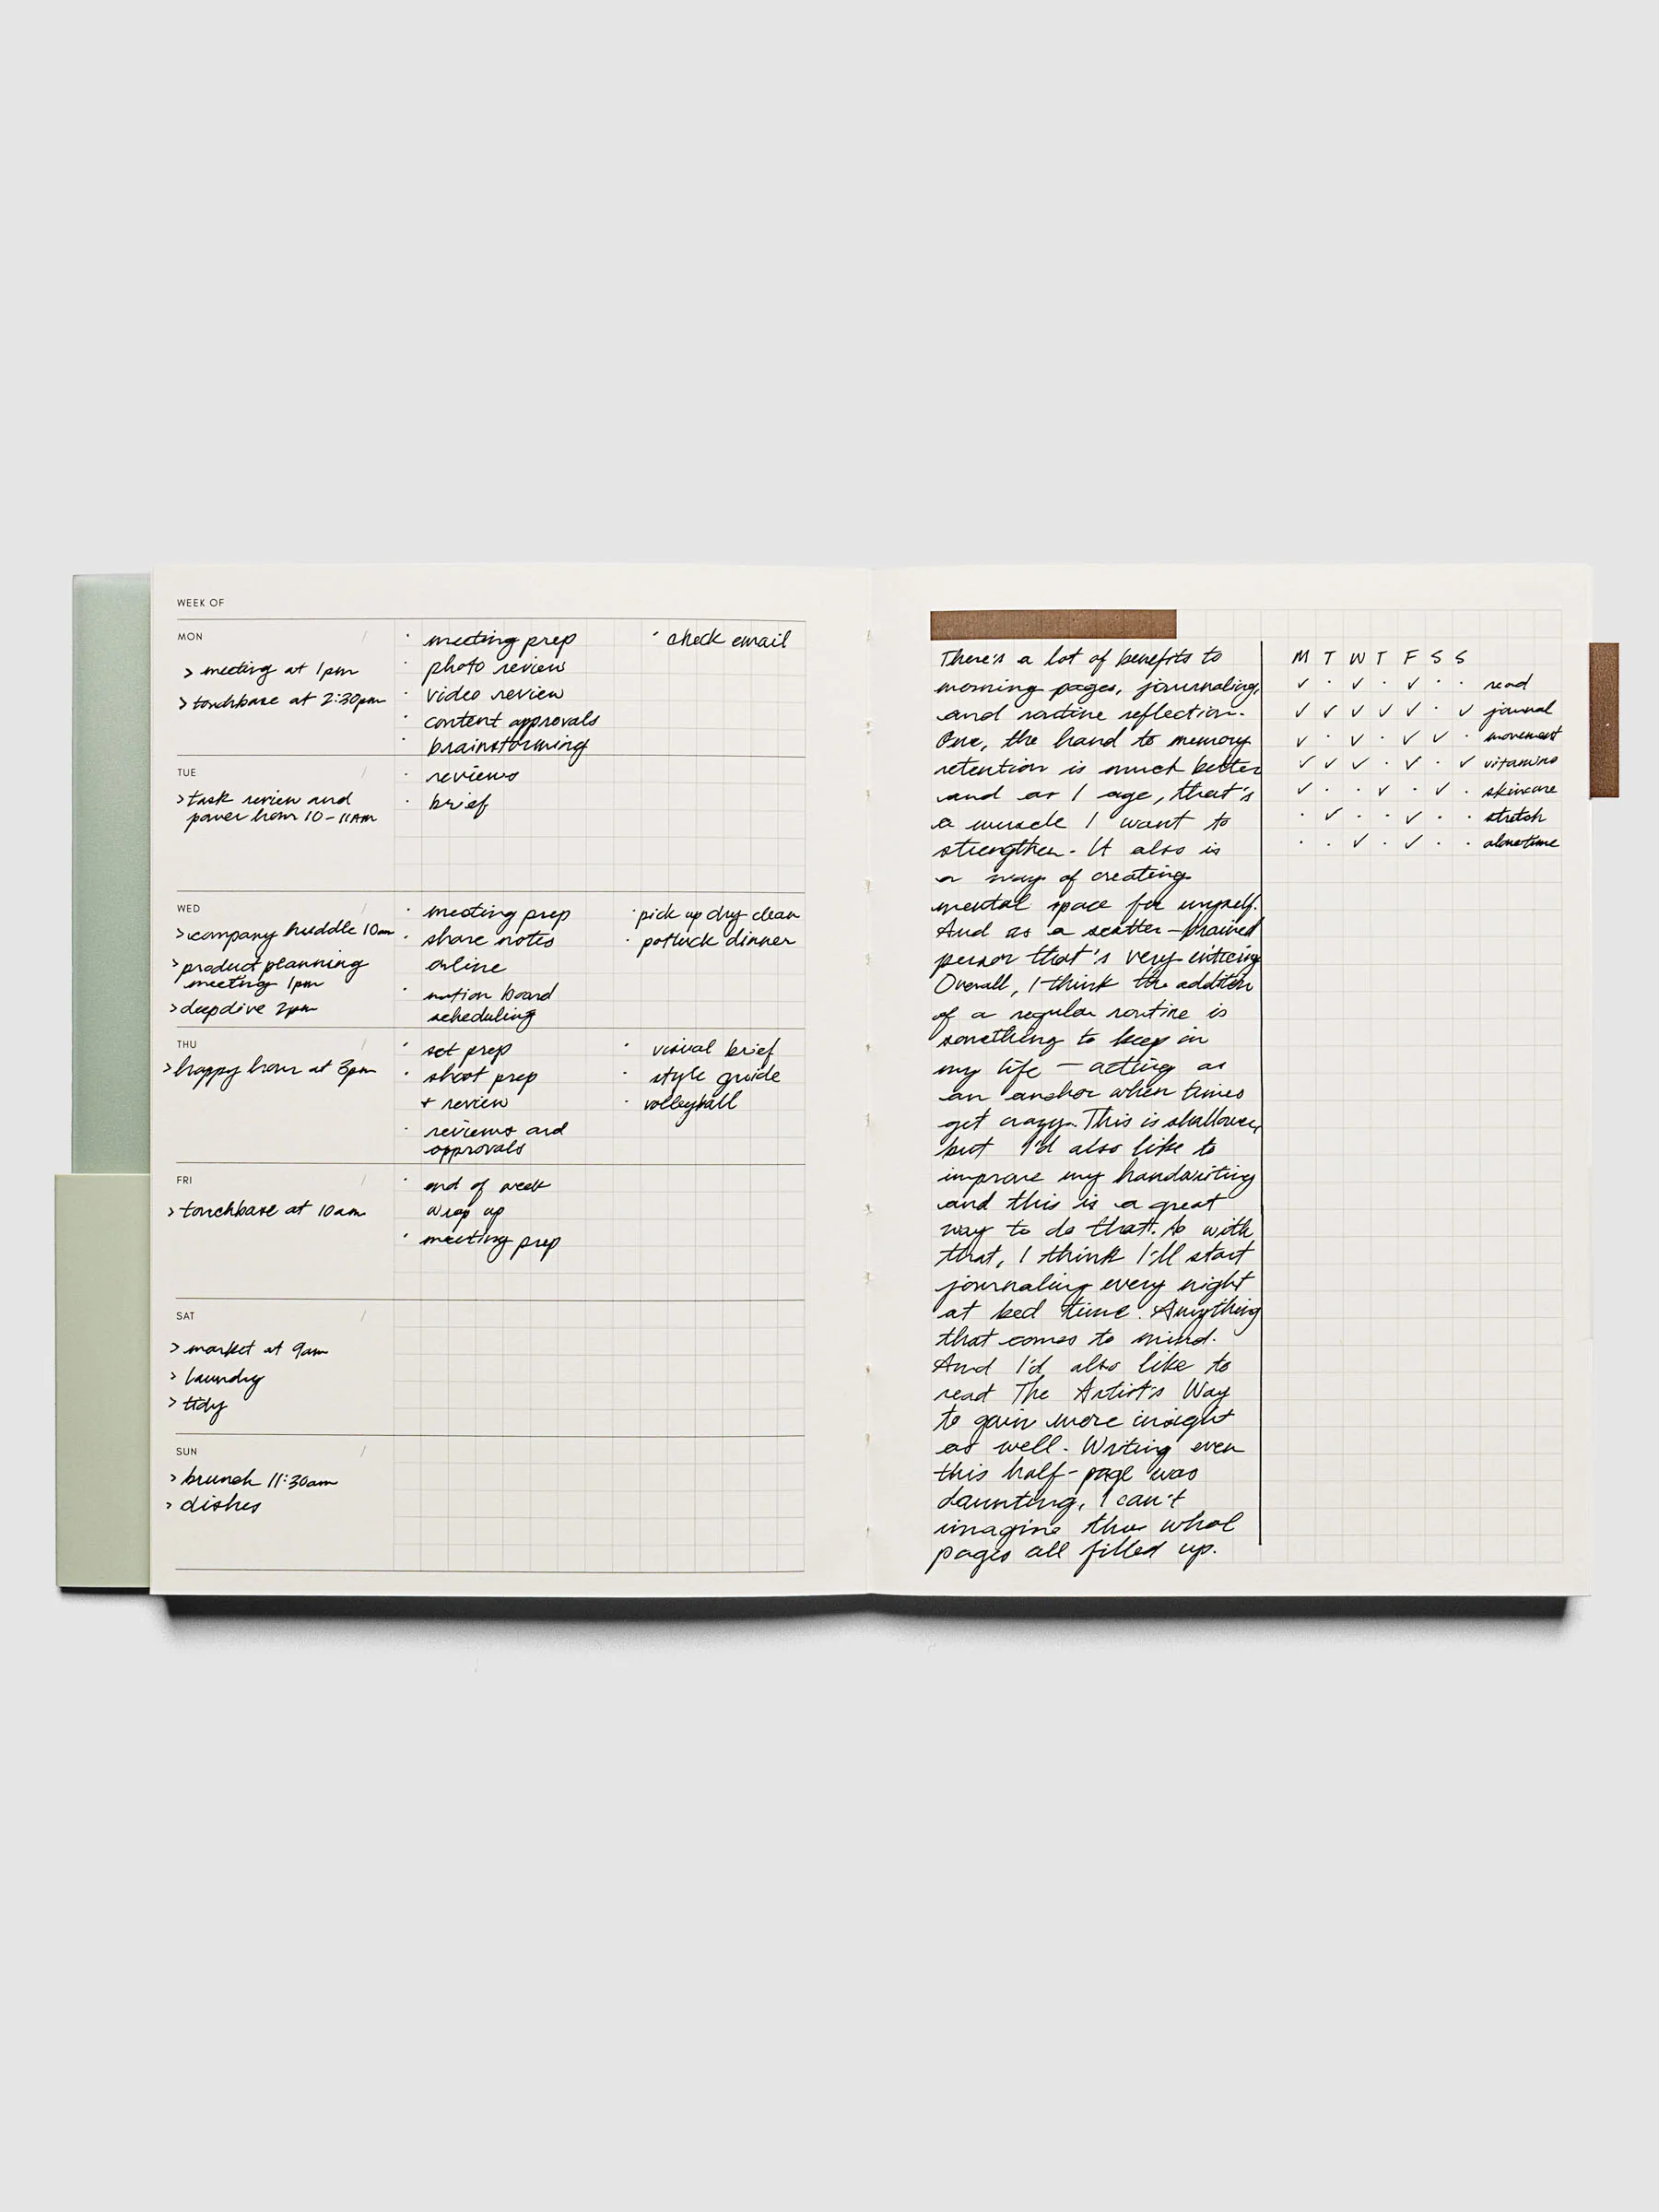 WEEK OF
MON
> meeting at 1pm
> touchbase at 2:30pm
· meeting prep
· photo review
· video review
· content approvals
· brainstorming
· check email
TUE
> task review and
power hour 10-11AM
· reviews
· brief
WED
> company huddle 10am
> product planning
meeting 1pm
> deepdive 2pm
· meeting prep
· share notes
online
· notion board
scheduling
· pick up dry clean
· potluck dinner
THU
> happy hour at 3pm
· set prep
· shoot prep
+ review
· reviews and
approvals
· visual brief
· style guide
· volleyball
FRI
> touchbase at 10am
· end of week
wrap up
· meeting prep
SAT
> market at 9am
> laundry
> tidy
SUN
> brunch 11:30am
> dishes
There's a lot of benefits to
morning pages, journaling,
and routine reflection.
One, the hand to memory
retention is much better
and as I age, that's
a muscle I want to
strengthen. It also is
a way of creating
mental space for myself.
And as a scatter-brained
person that's very enticing
Overall, I think the addition
of a regular routine is
something to keep in
my life — acting as
an anchor when times
get crazy. This is shallower,
but I'd also like to
improve my handwriting
and this is a great
way to do that. So with
that, I think I'll start
journaling every night
at bed time. Anything
that comes to mind.
And I'd also like to
read The Artist's Way
to gain more insight
as well. Writing even
this half-page was
daunting, I can't
imagine the whol
pages all filled up.
M T W T F S S
✓ · ✓ · ✓ · · read
✓ ✓ ✓ ✓ ✓ · ✓ journal
✓ · ✓ · ✓ ✓ · movement
✓ ✓ ✓ · ✓ · ✓ vitamins
✓ · · ✓ · ✓ · skincare
· ✓ · · ✓ · · stretch
· · ✓ · ✓ · · alonetime